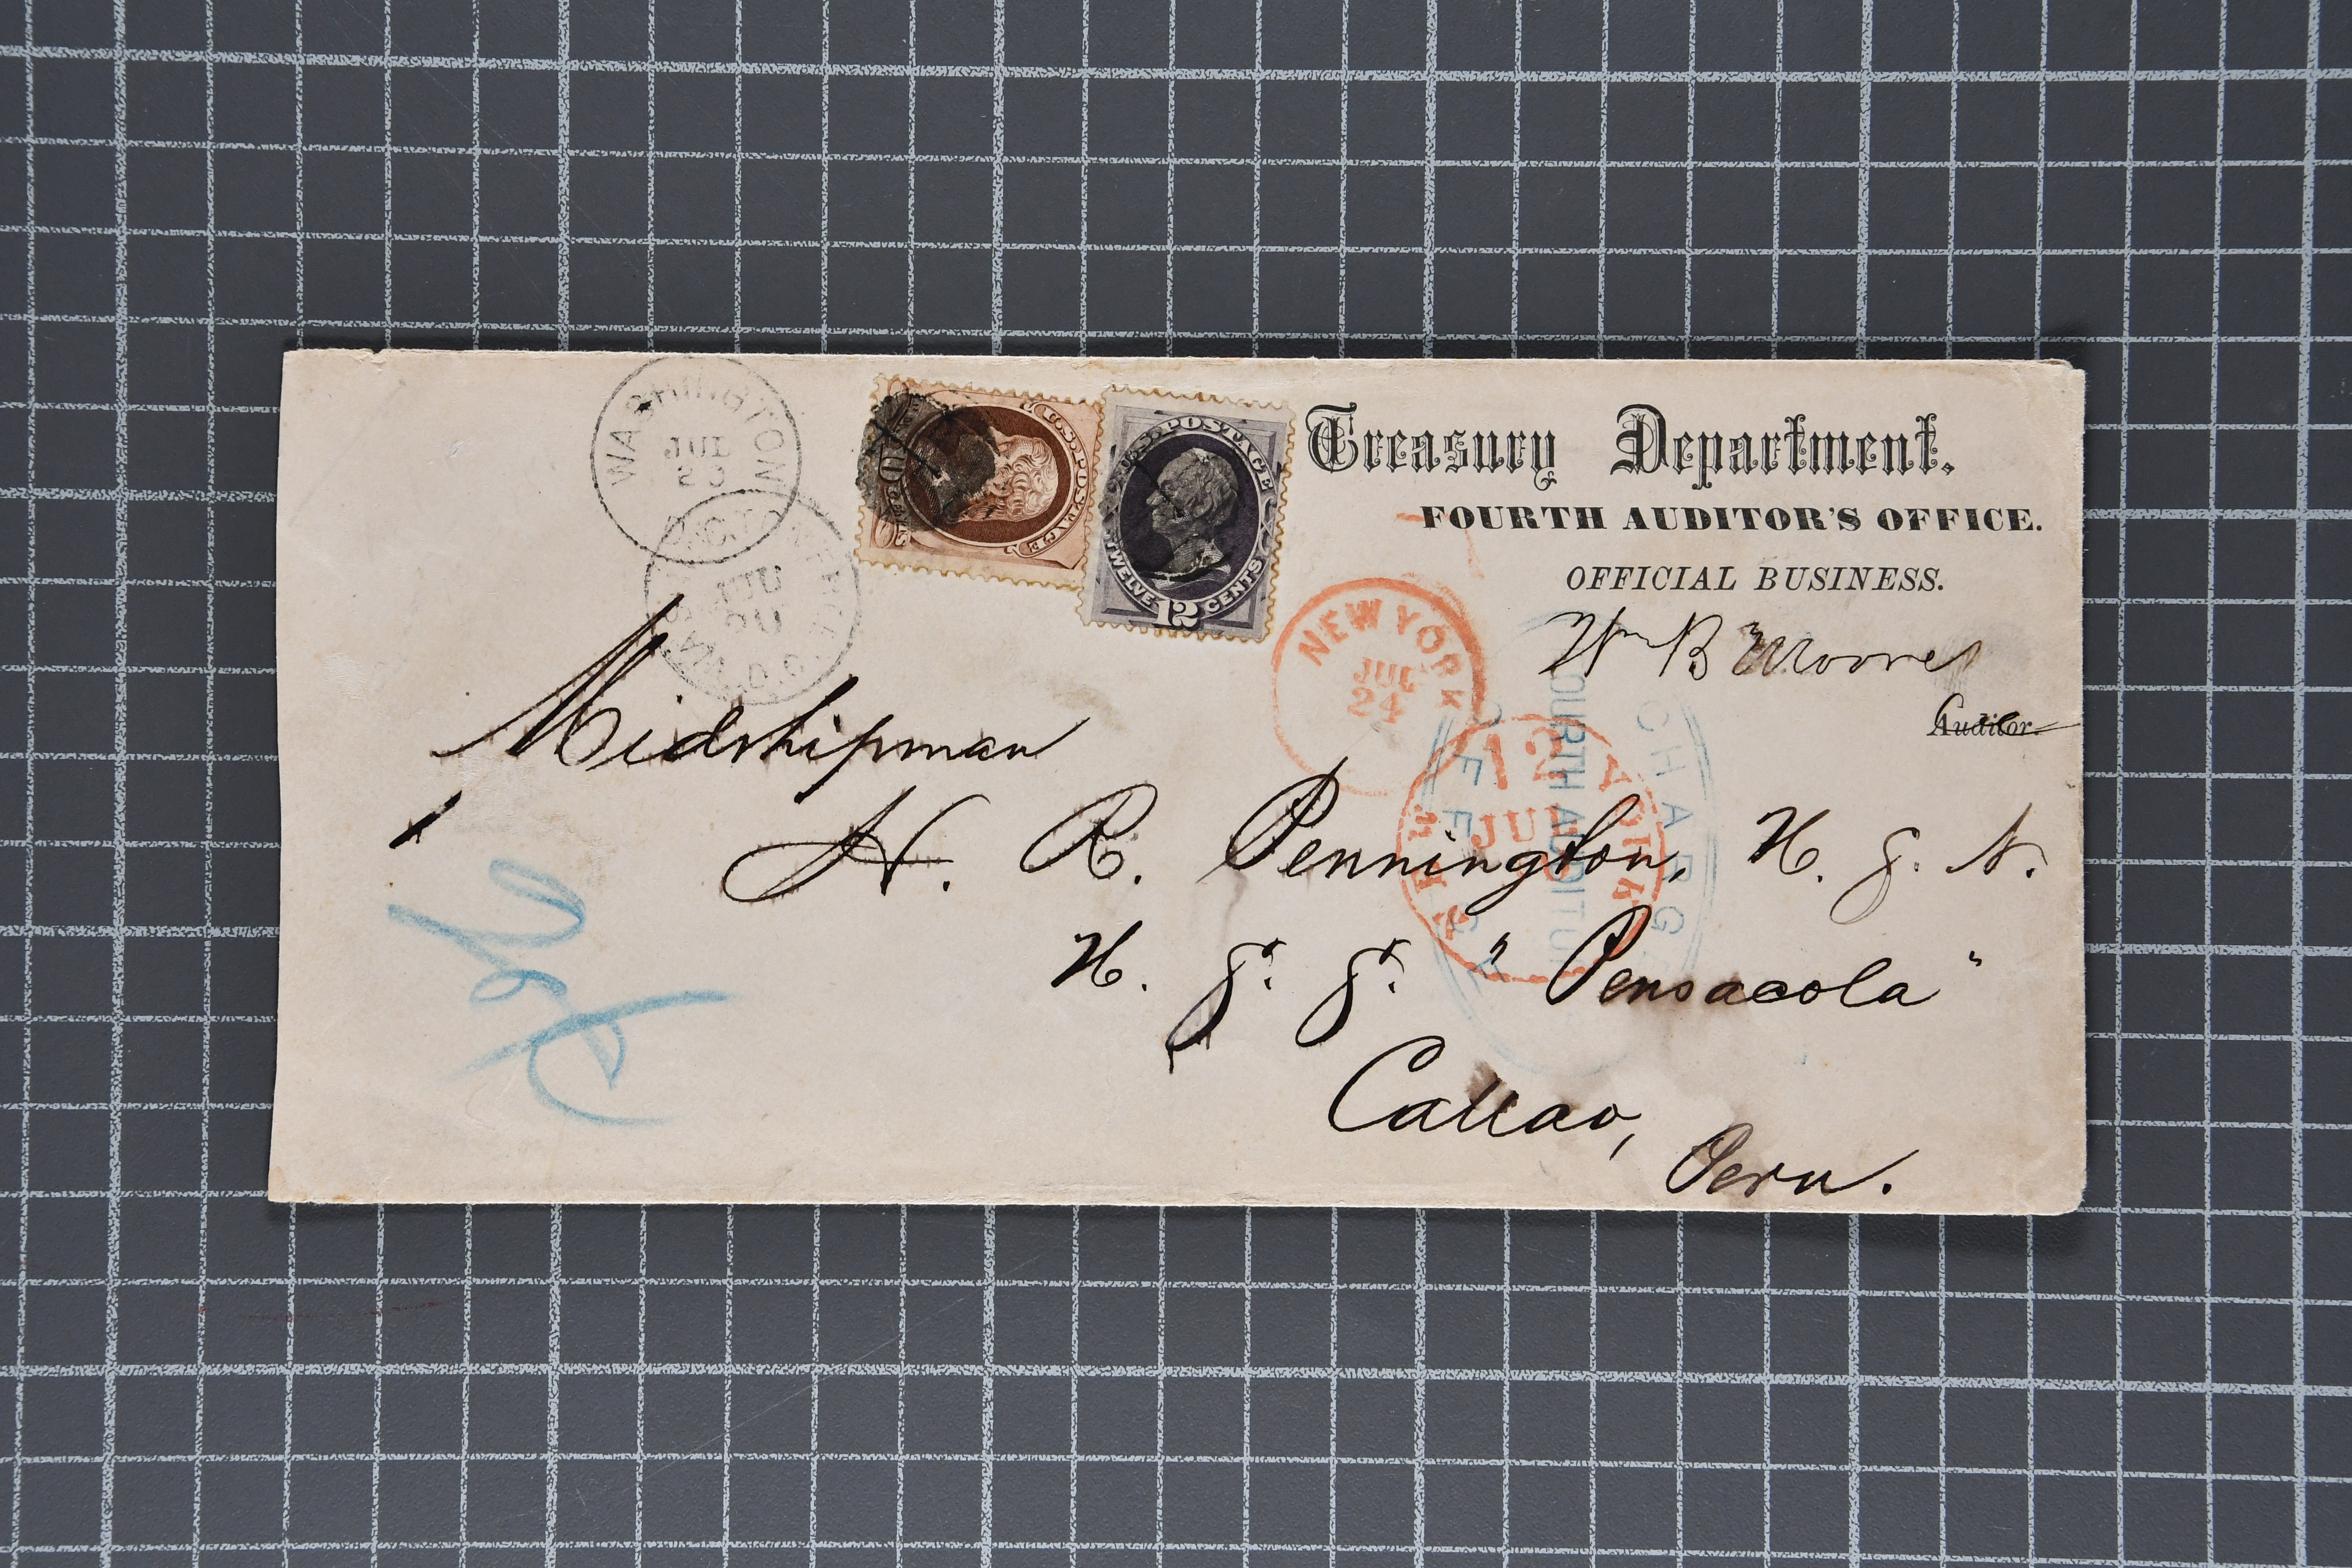 WASHINGTON
JUL
23
U.S. POSTAGE
U.S. POSTAGE
TWELVE 12 CENTS
Treasury Department.
FOURTH AUDITOR'S OFFICE.
OFFICIAL BUSINESS.
Wm B Moore
Auditor.
NEW YORK
JUL
24
NEW YORK
12
JUL
CHARGE
FOURTH AUDITOR
OFFICE
Midshipman
H. R. Pennington, U. S. N.
U. S. S. "Pensacola"
Callao,
Peru.